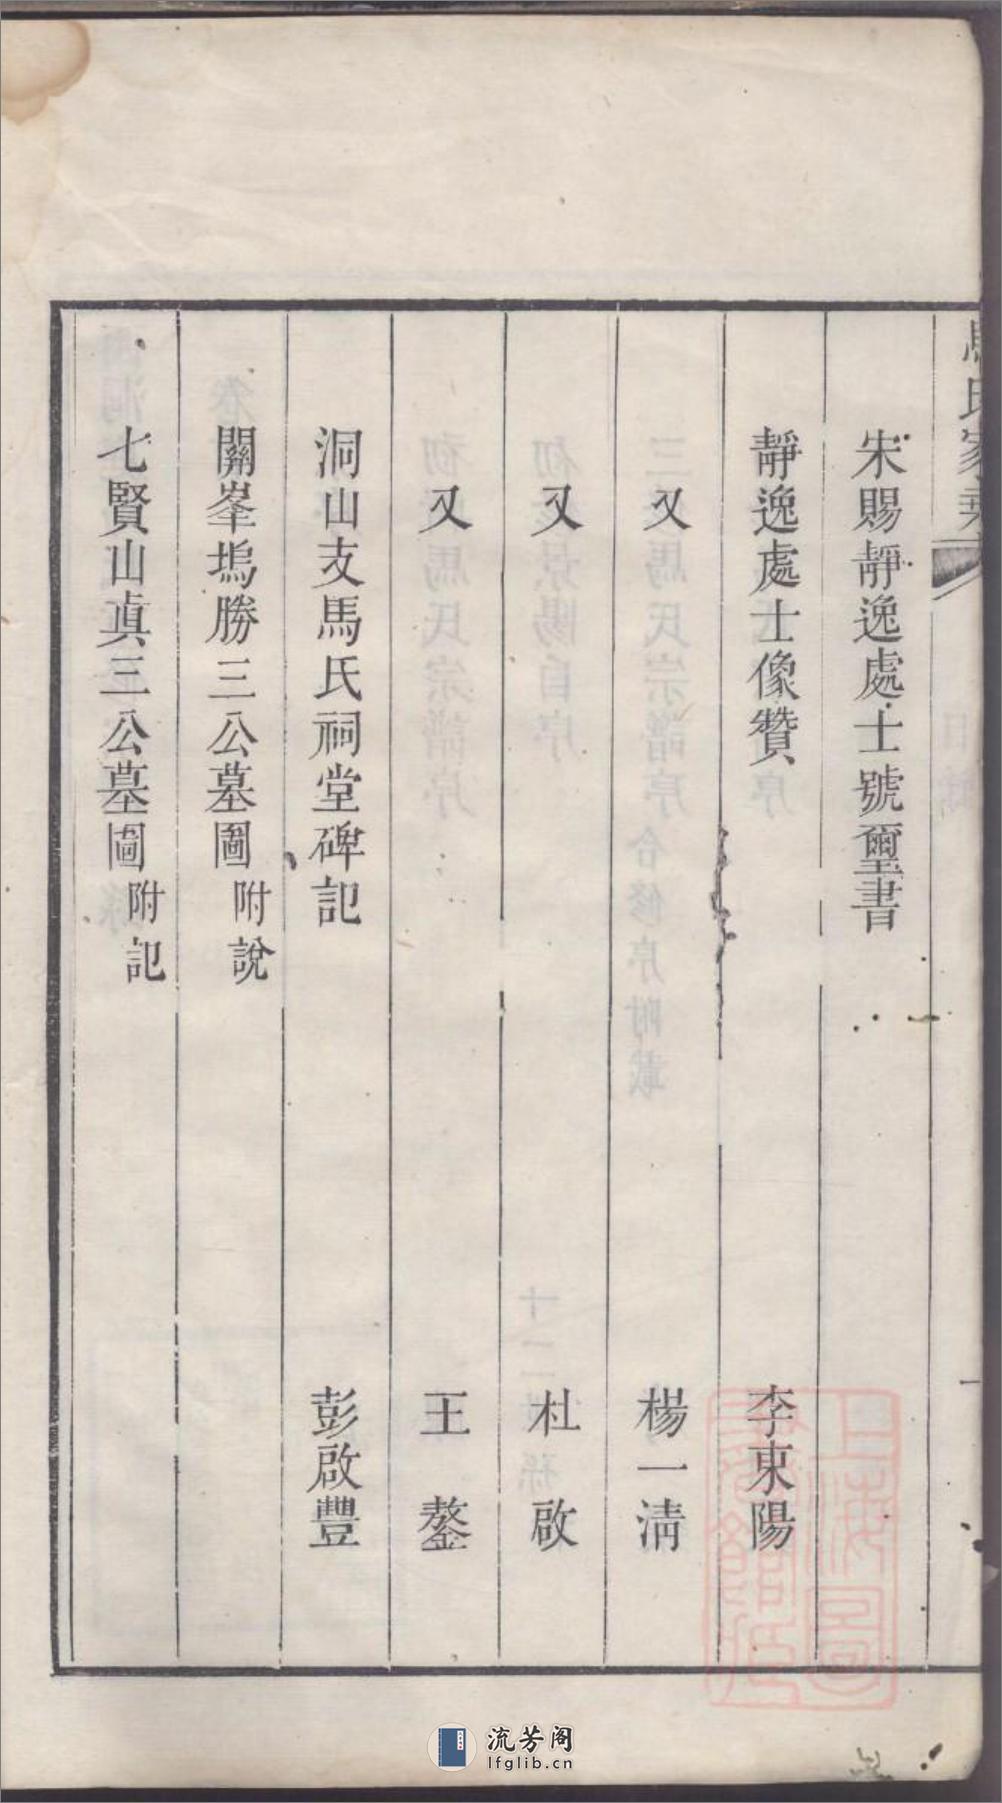 馬氏家乘
宋賜靜逸處士號璽書
靜逸處士像贊 李東陽
又 楊一清
又 杜啟
又 王鏊
洞山支馬氏祠堂碑記 彭啟豐
關峯塢勝三公墓圖附說
七賢山眞三公墓圖附記
流芳阁
lfglib.cn